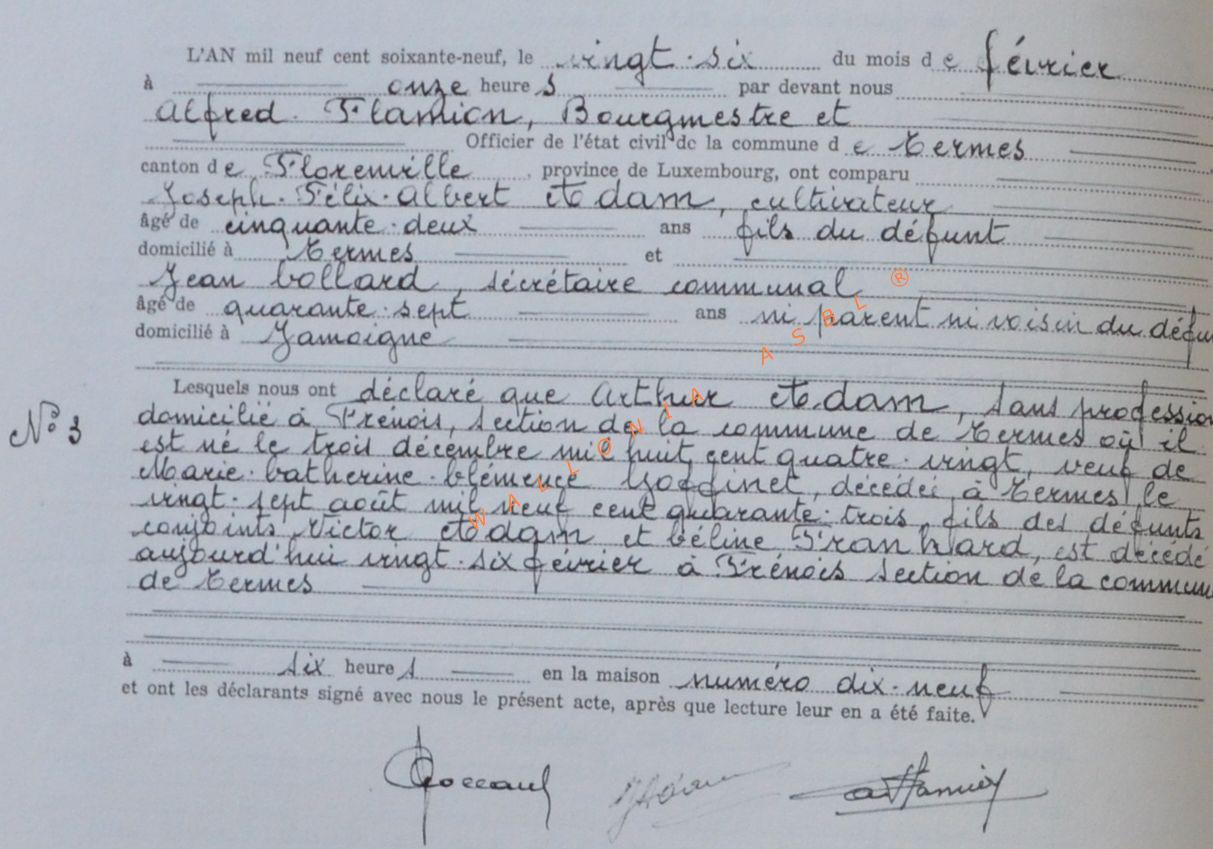 L'AN mil neuf cent soixante-neuf, le vingt-six du mois de février
à onze heures par devant nous
Alfred Flamion, Bourgmestre et
Officier de l'état civil de la commune de Termes
canton de Florenville, province de Luxembourg, ont comparu
Joseph-Félix-Albert Adam, cultivateur
âgé de cinquante-deux ans fils du défunt
domicilié à Termes et
Jean Collard, secrétaire communal
âgé de quarante-sept ans ni parent ni voisin du défu
domicilié à Jamoigne
Lesquels nous ont déclaré que Arthur Adam, sans profession
N° 3
domicilié à Frénois, section de la commune de Termes où il
est né le trois décembre mil huit cent quatre-vingt, veuf de
Marie-Catherine-Clémence Goffinet, décédée à Termes le
vingt-sept août mil neuf cent quarante-trois, fils des défunts
conjoints Victor Adam et Céline Franhard, est décédé
aujourd'hui vingt-six février à Frénois section de la commun
de Termes
à six heures en la maison numéro dix-neuf
et ont les déclarants signé avec nous le présent acte, après que lecture leur en a été faite.
WALLONIA ASBL ®